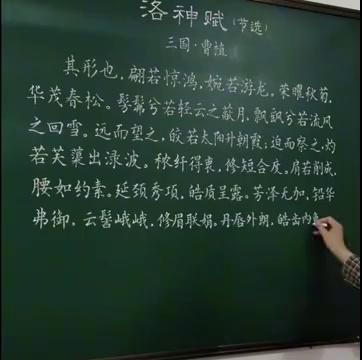 洛神赋(节选)
三国·曹植
其形也,翩若惊鸿,婉若游龙。荣曜秋菊,
华茂春松。髣髴兮若轻云之蔽月,飘飖兮若流风
之回雪。远而望之,皎若太阳升朝霞;迫而察之,灼
若芙蕖出渌波。秾纤得衷,修短合度。肩若削成,
腰如约素。延颈秀项,皓质呈露。芳泽无加,铅华
弗御。云髻峨峨,修眉联娟。丹唇外朗,皓齿内